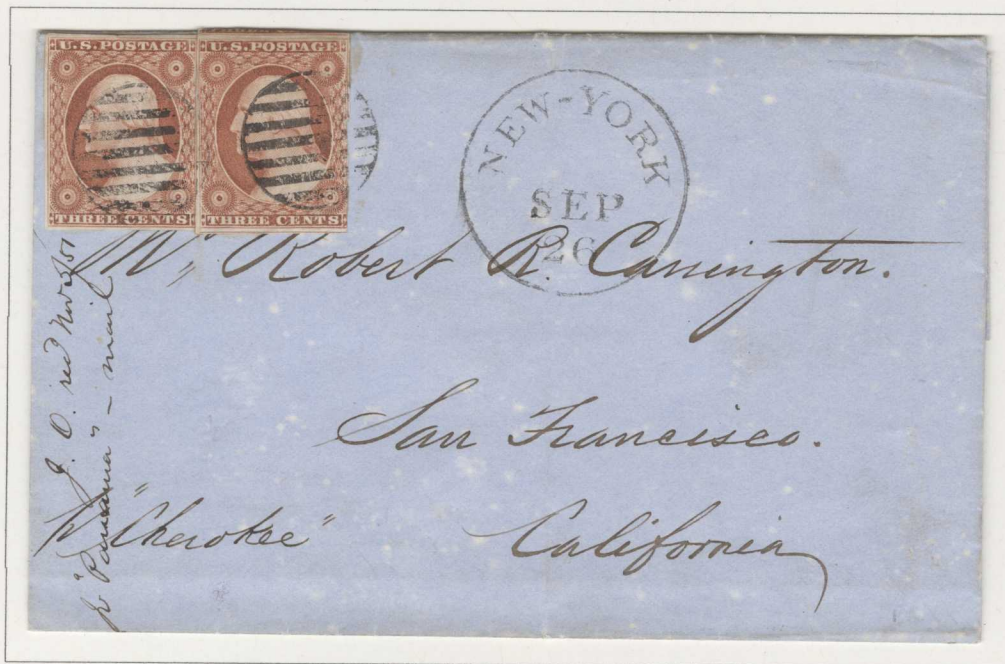 U.S. POSTAGE
THREE CENTS
U.S. POSTAGE
THREE CENTS
NEW-YORK
SEP
26
Mr. Robert R. Carrington.
San Francisco.
California
p "Cherokee"
J. O. recd Nov 3/51
p "Panama" - mail